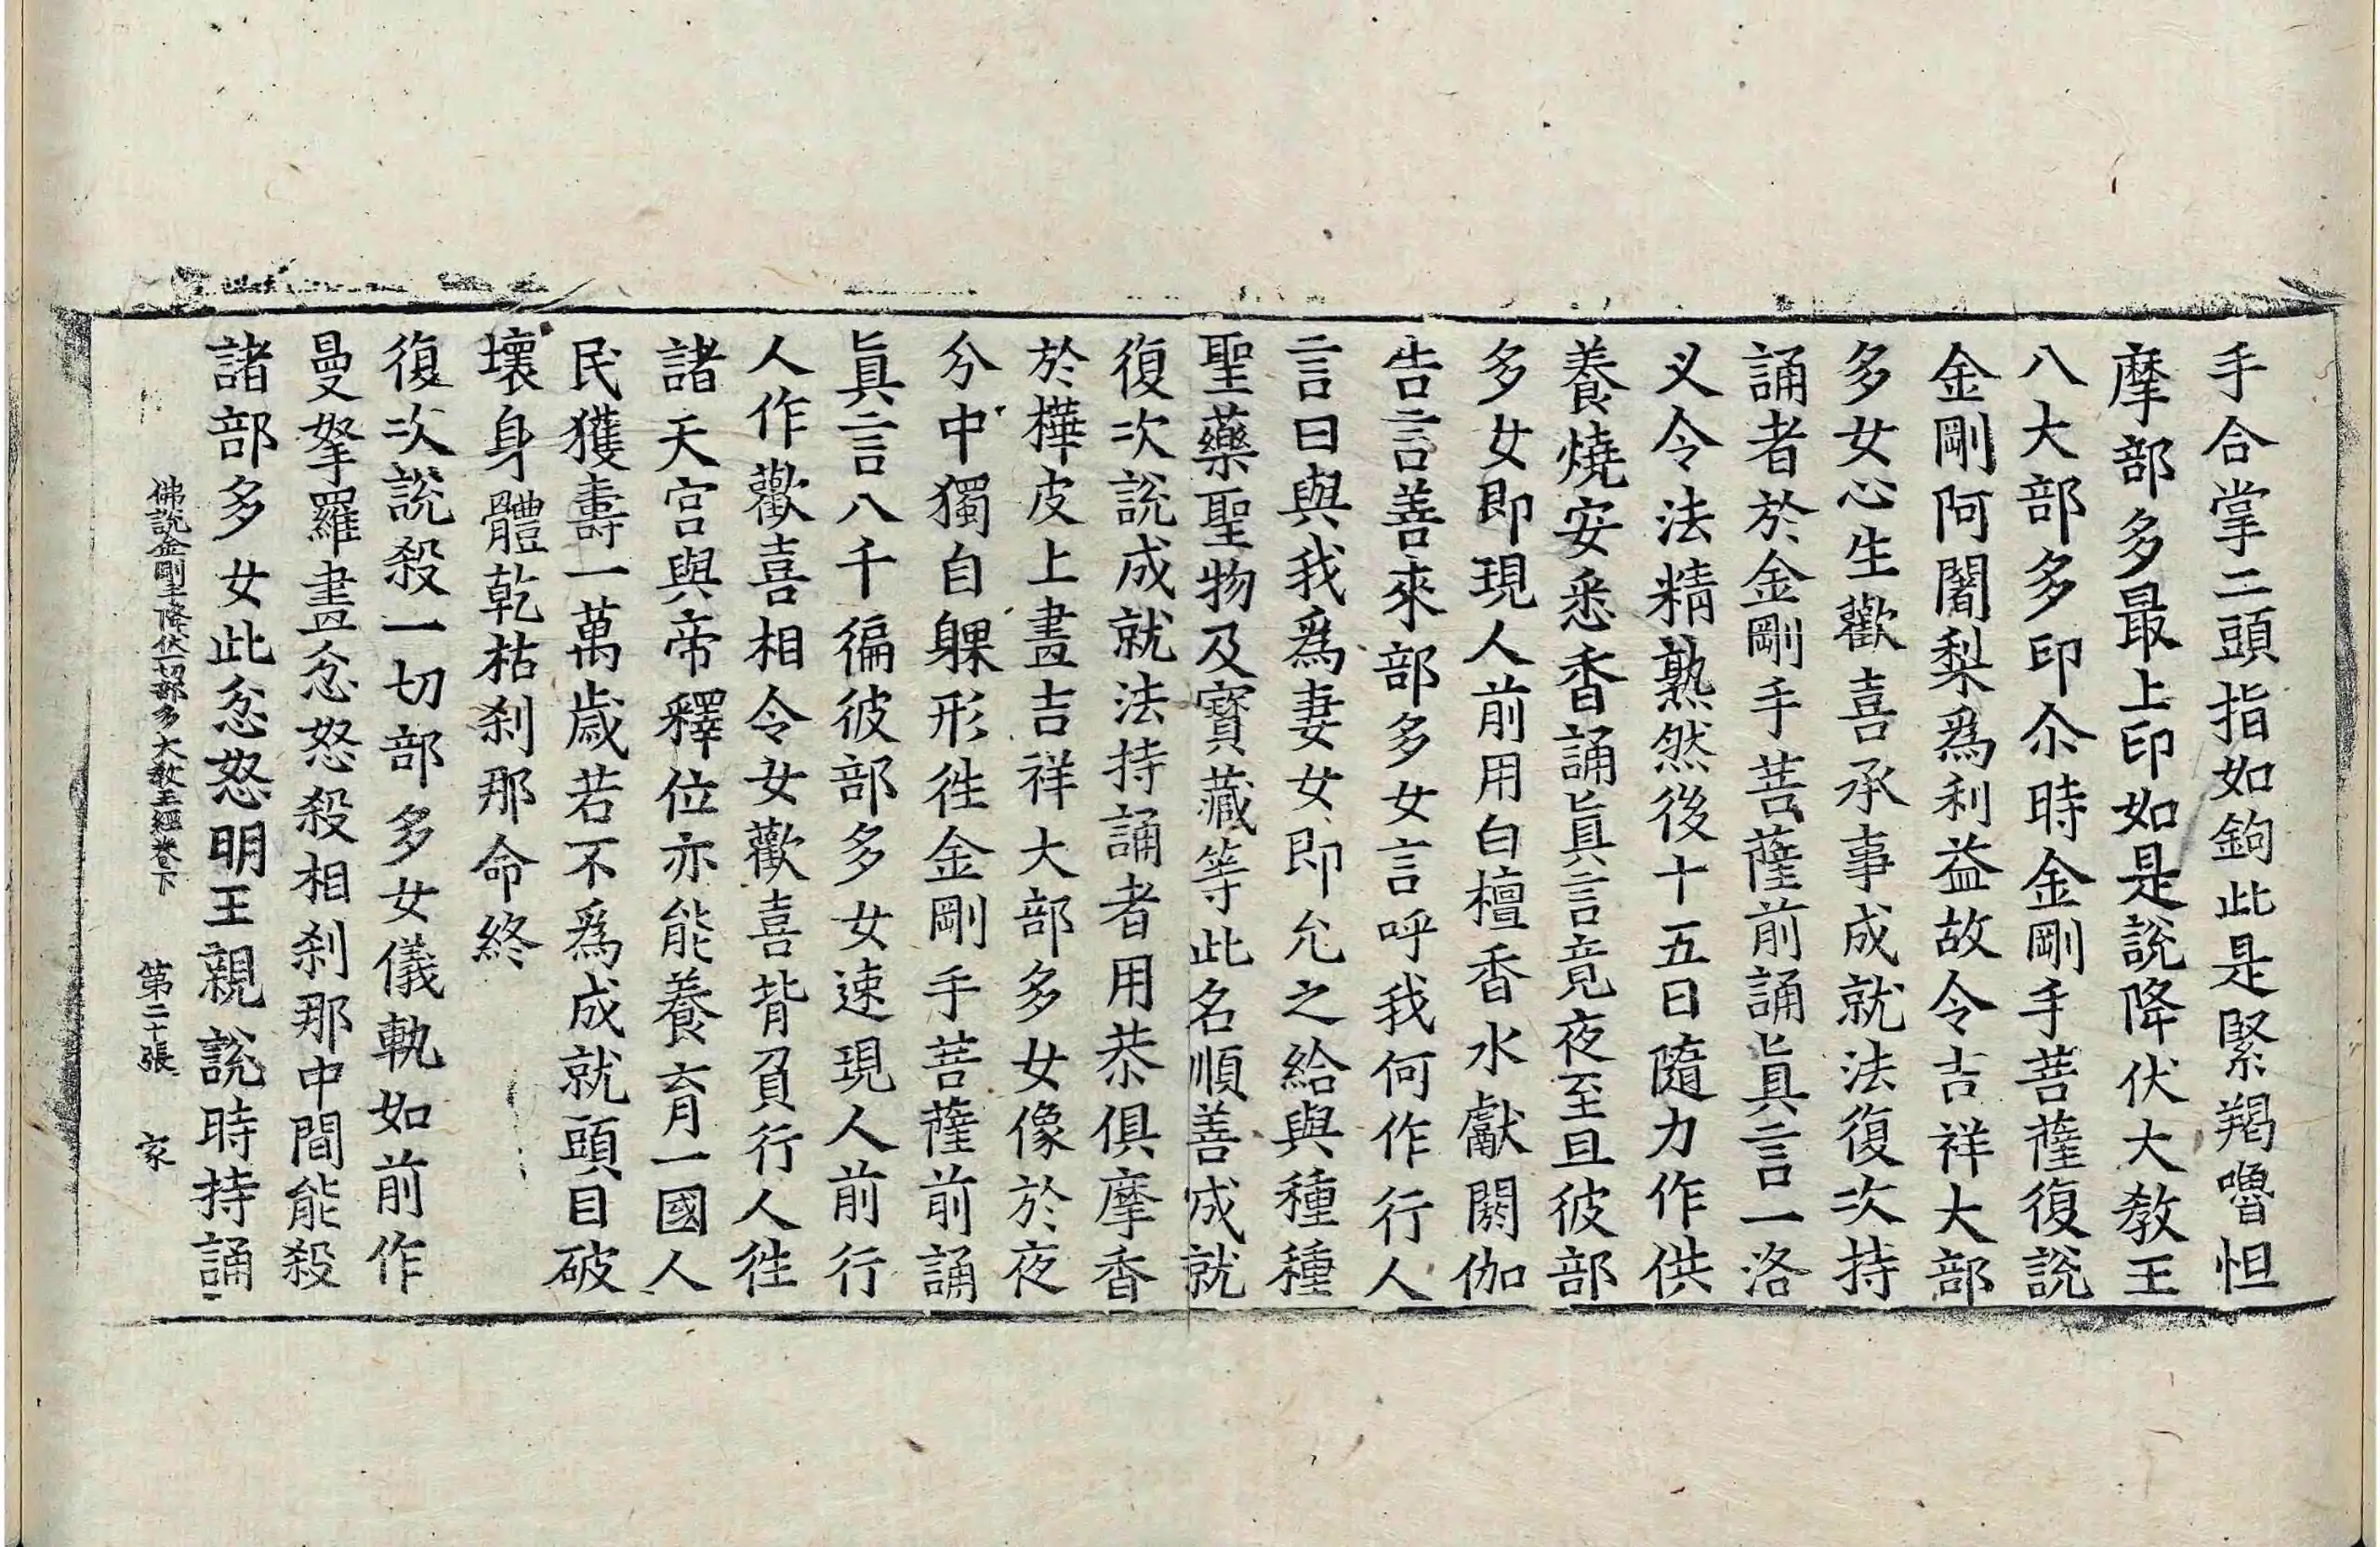 手合掌二頭指如鉤此是緊羯嚕怛
摩部多最上印如是說降伏大教王
八大部多印尒時金剛手菩薩復說
金剛阿闍梨爲利益故令吉祥大部
多女心生歡喜承事成就法復次持
誦者於金剛手菩薩前誦眞言一洛
义令法精熟然後十五日隨力作供
養燒安悉香誦眞言竟夜至旦彼部
多女即現人前用白檀香水獻閼伽
告言善來部多女言呼我何作行人
言曰與我爲妻女即允之給與種種
聖藥聖物及寳藏等此名順善成就
復次說成就法持誦者用恭俱摩香
於樺皮上畫吉祥大部多女像於夜
分中獨自躶形徃金剛手菩薩前誦
眞言八千徧彼部多女速現人前行
人作歡喜相令女歡喜背負行人徃
諸天宮與帝釋位亦能養育一國人
民獲壽一萬歲若不爲成就頭目破
壞身體乾枯刹那命終
復次說殺一切部多女儀軌如前作
曼拏羅畫忿怒殺相刹那中間能殺
諸部多女此忿怒明王親說時持誦
佛說金剛手降伏一切部多大教王經卷下 第二十張 家